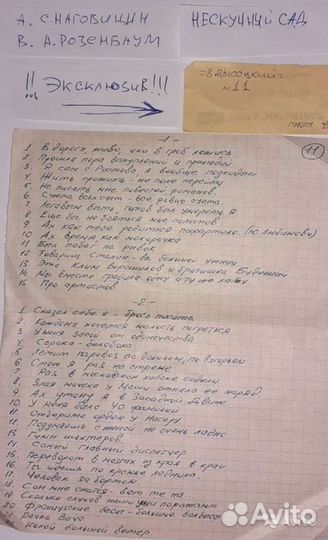 А. С. НАГОВИЦИН
В. А. РОЗЕНБАУМ
НЕСКУЧНЫЙ САД
!! ЭКСКЛЮЗИВ!!!
=В.ВЫСОЦКИЙ=
№11
11
-1-
1. В дорогу, живо, или в гроб ложись
2. Прошла пора вступлений и прелюдий
3. Я сам с Ростова я вообще подкидыш
4. Жить прожить - не поле перейти
5. Не писать мне повестей, романов
6. Суета всех сует - все равно суета
7. Легавым быть готов был умереть я
8. Еще бы - не бояться мне полетов
9. Ах как тебе родиться пофартило (Ю. Любимову)
10. Ах время как махорочка
11. Был побег на рывок
12. Товарищ Сталин - вы большой ученый
13. Эти Клим Ворошилов и братишка Буденный
14. Мы вместе грабили одну и ту же хату
15. Про артистов
-2-
1. Сказал себе я - брось писать
2. Каждому хочется малость погреться
3. У меня запой от одиночества
4. Сорока - белобока
5. Летит паровоз по долинам, по взгорьям
6. Стою я раз на стреме
7. Раз в московском кабаке сидели
8. Злая мачеха у Маши отняла ее наряд
9. Ах утону я в Западной Двине
10. У меня было 40 фамилий
11. Отберите орден у Насера
12. Подумаешь с женой не очень ладно
13. Гимн шахтеров.
14. Самый главный диспетчер
15. Переворот в мозгах из края в край
16. Ты идешь по кромке ледника
17. Человек за бортом
18. Сон мне снится - вот те на...
19. Сколько слухов наши уши поражают
20. Французские бесы - большие балбесы
21. Речка Вача
Какой большой ветер
Avito